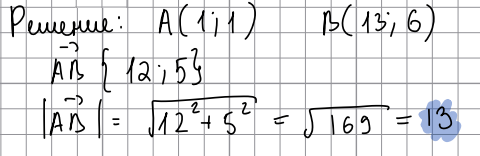 Решение: A(1;1) B(13;6)
AB→ {12;5}
|AB→| = √12²+5² = √169 = 13